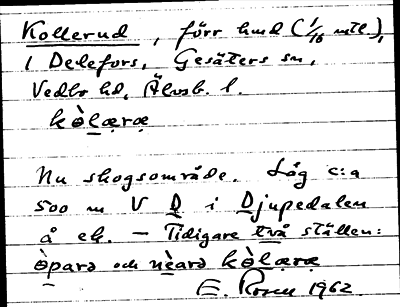 Kollerud, förr hmd (1/16 mtl.),
i Delefors, Gesäters sn,
Vedbo hd, Älvsb. l.
kò̀læræ
Nu skogsområde. Låg c:a
500 m V D i Djupedalen
å ek. – Tidigare två ställen:
ò̀parə och nèarə kò̀læræ
E. Rosell 1962